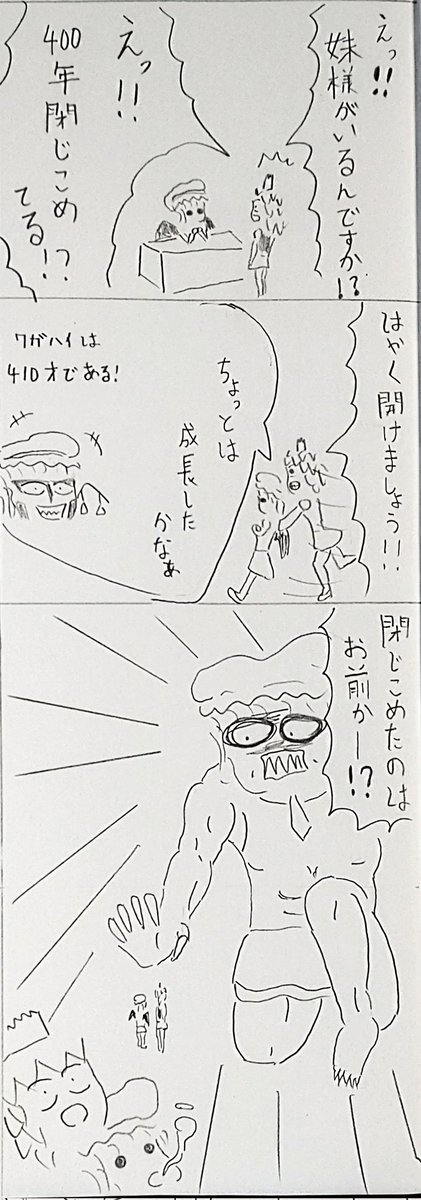 えっ!!
妹様がいるんですか!?
えっ!!
400年閉じこめ
てる!?
はやく開けましょう!!
ちょっとは
成長した
かなぁ
ワガハイは
410才である!
閉じこめたのは
お前かー!?